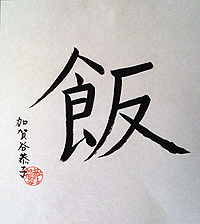 飯
加賀谷恭子